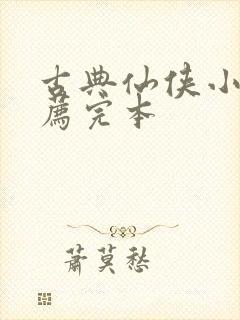 古典仙侠小
薦完本
蕭莫愁